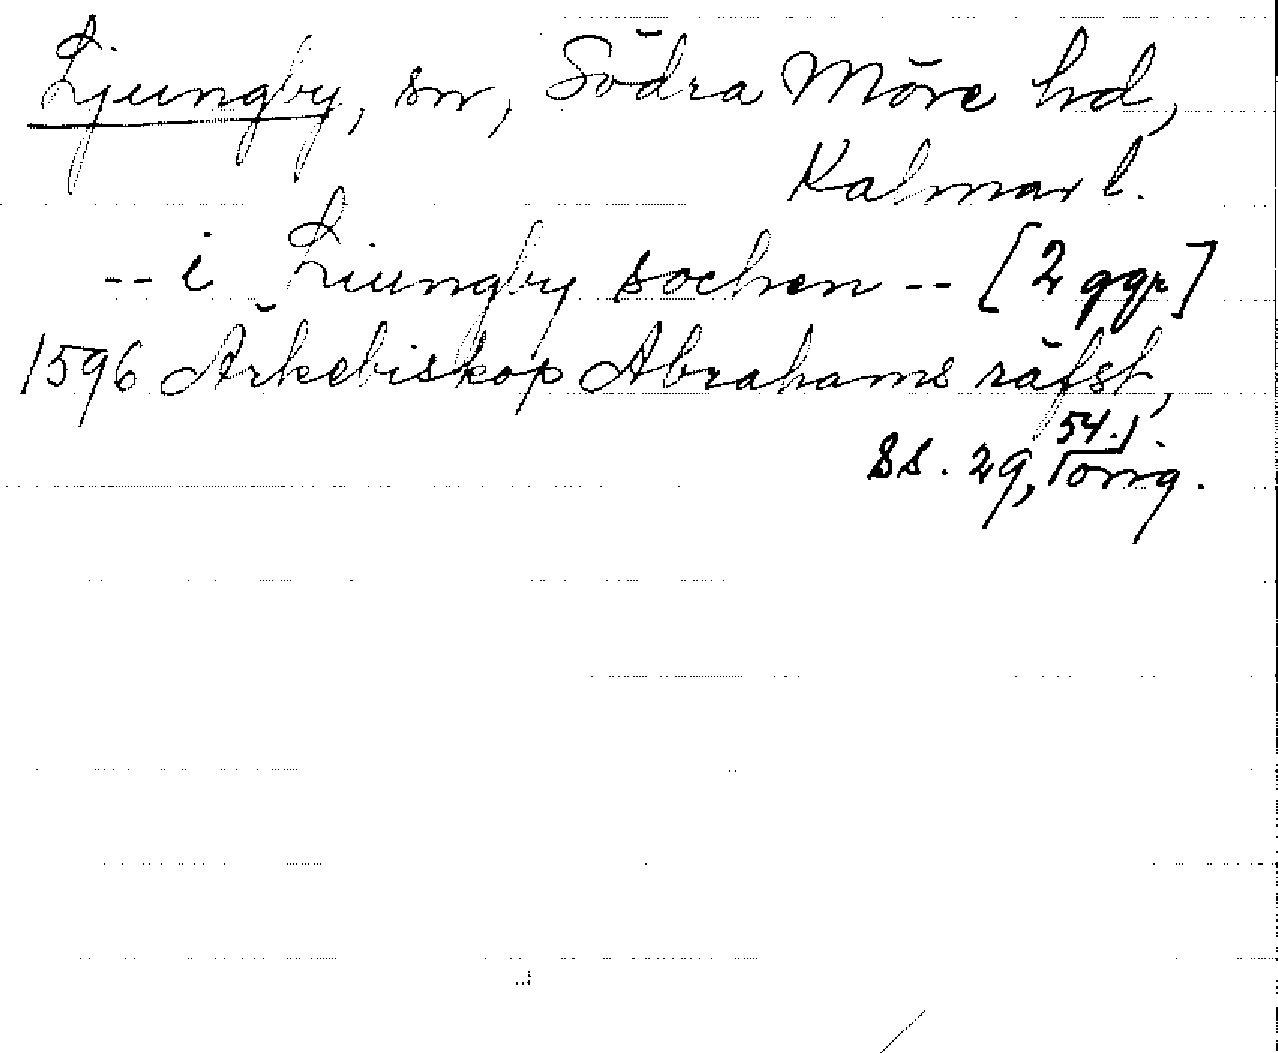 Ljungby, sn, Södra Möre hd,
Kalmar l.
-- i Liungby sochen -- [2 ggr]
1596 Ärkebiskop Abrahams räfst,
ss. 29, 54. orig.